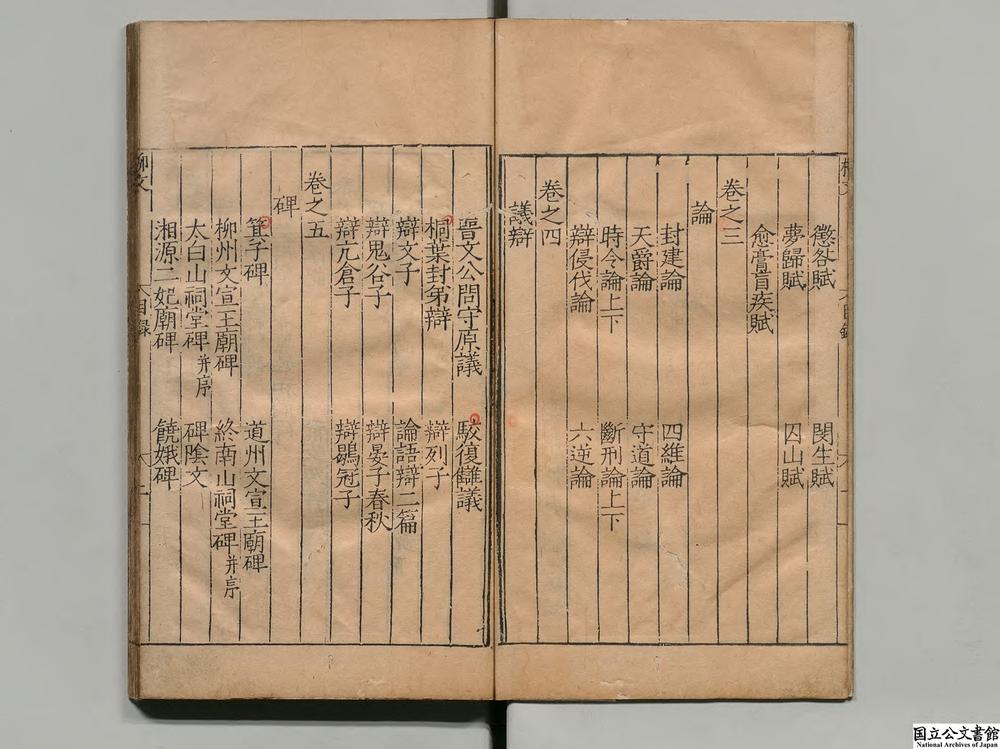 懲咎賦 閔生賦
夢歸賦 囚山賦
愈膏肓疾賦
卷之三
論
封建論 四維論
天爵論 守道論
時令論上下 斷刑論上下
辯侵伐論 六逆論
卷之四
議辯
晉文公問守原議 駮復讎議
桐葉封弟辯 辯列子
辯文子 論語辯二篇
辯鬼谷子 辯晏子春秋
辯亢倉子 辯鶡冠子
卷之五
碑
箕子碑 道州文宣王廟碑
柳州文宣王廟碑 終南山祠堂碑并序
太白山祠堂碑并序 碑陰文
湘源二妃廟碑 饒娥碑
柳文 目録
国立公文書館
National Archives of Japan